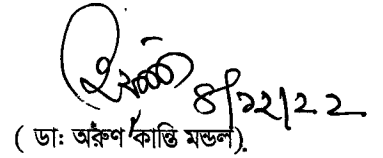 ৪/১২/২২
( ডাঃ অরুণ কান্তি মন্ডল).